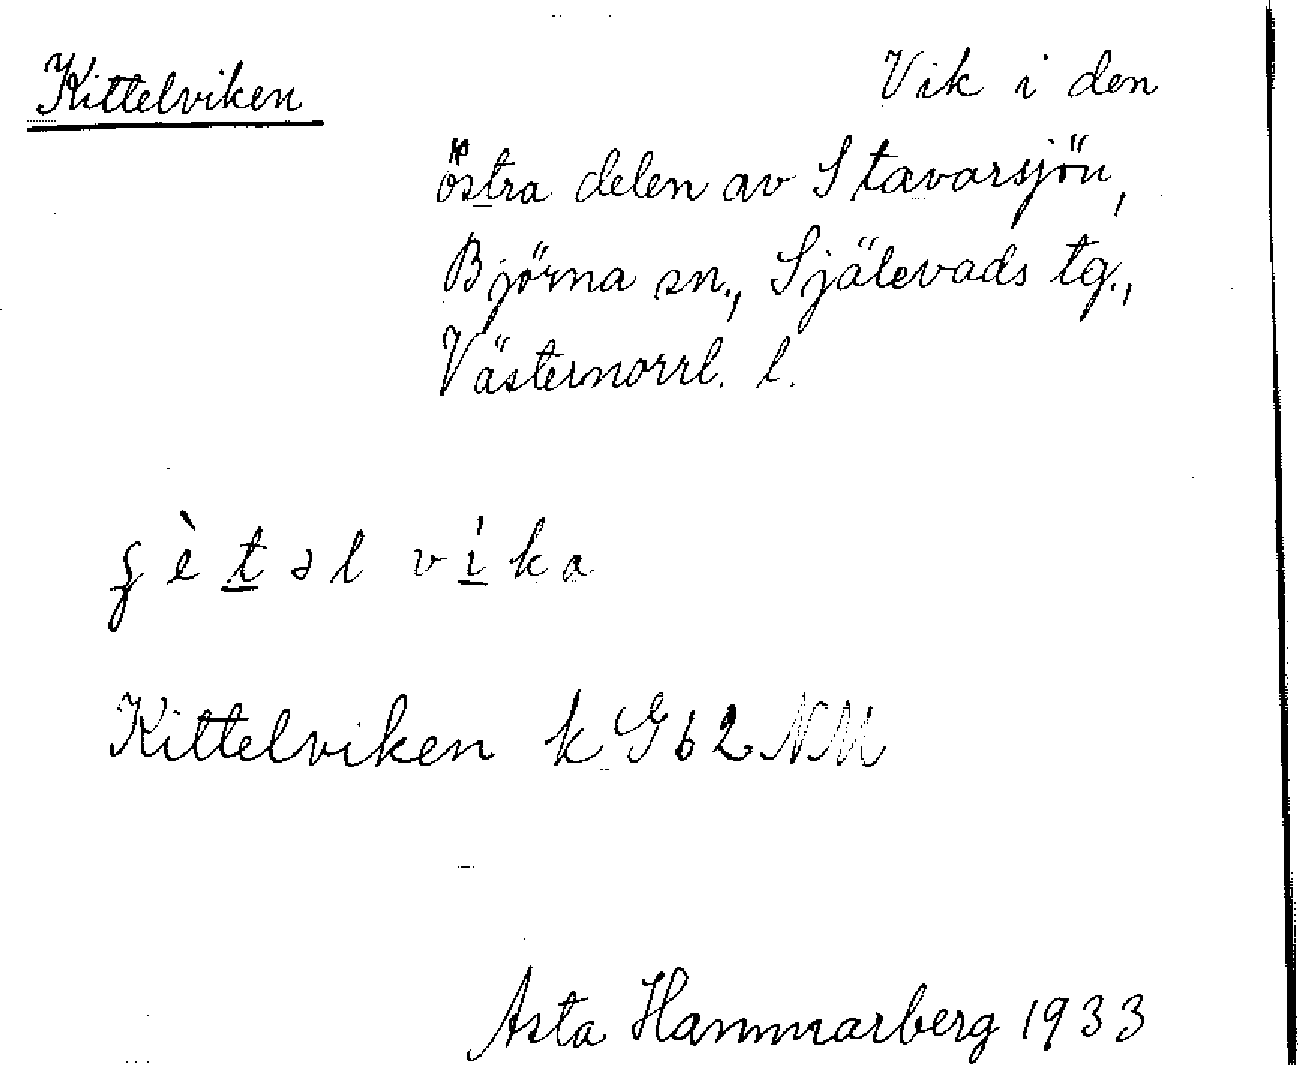 Kittelviken Vik i den
östra delen av Stavarsjön,
Björna sn., Själevads tg.,
Västernorrl. l.
ʂètəl víka
Kittelviken k Gb2 NM
Asta Hammarberg 1933